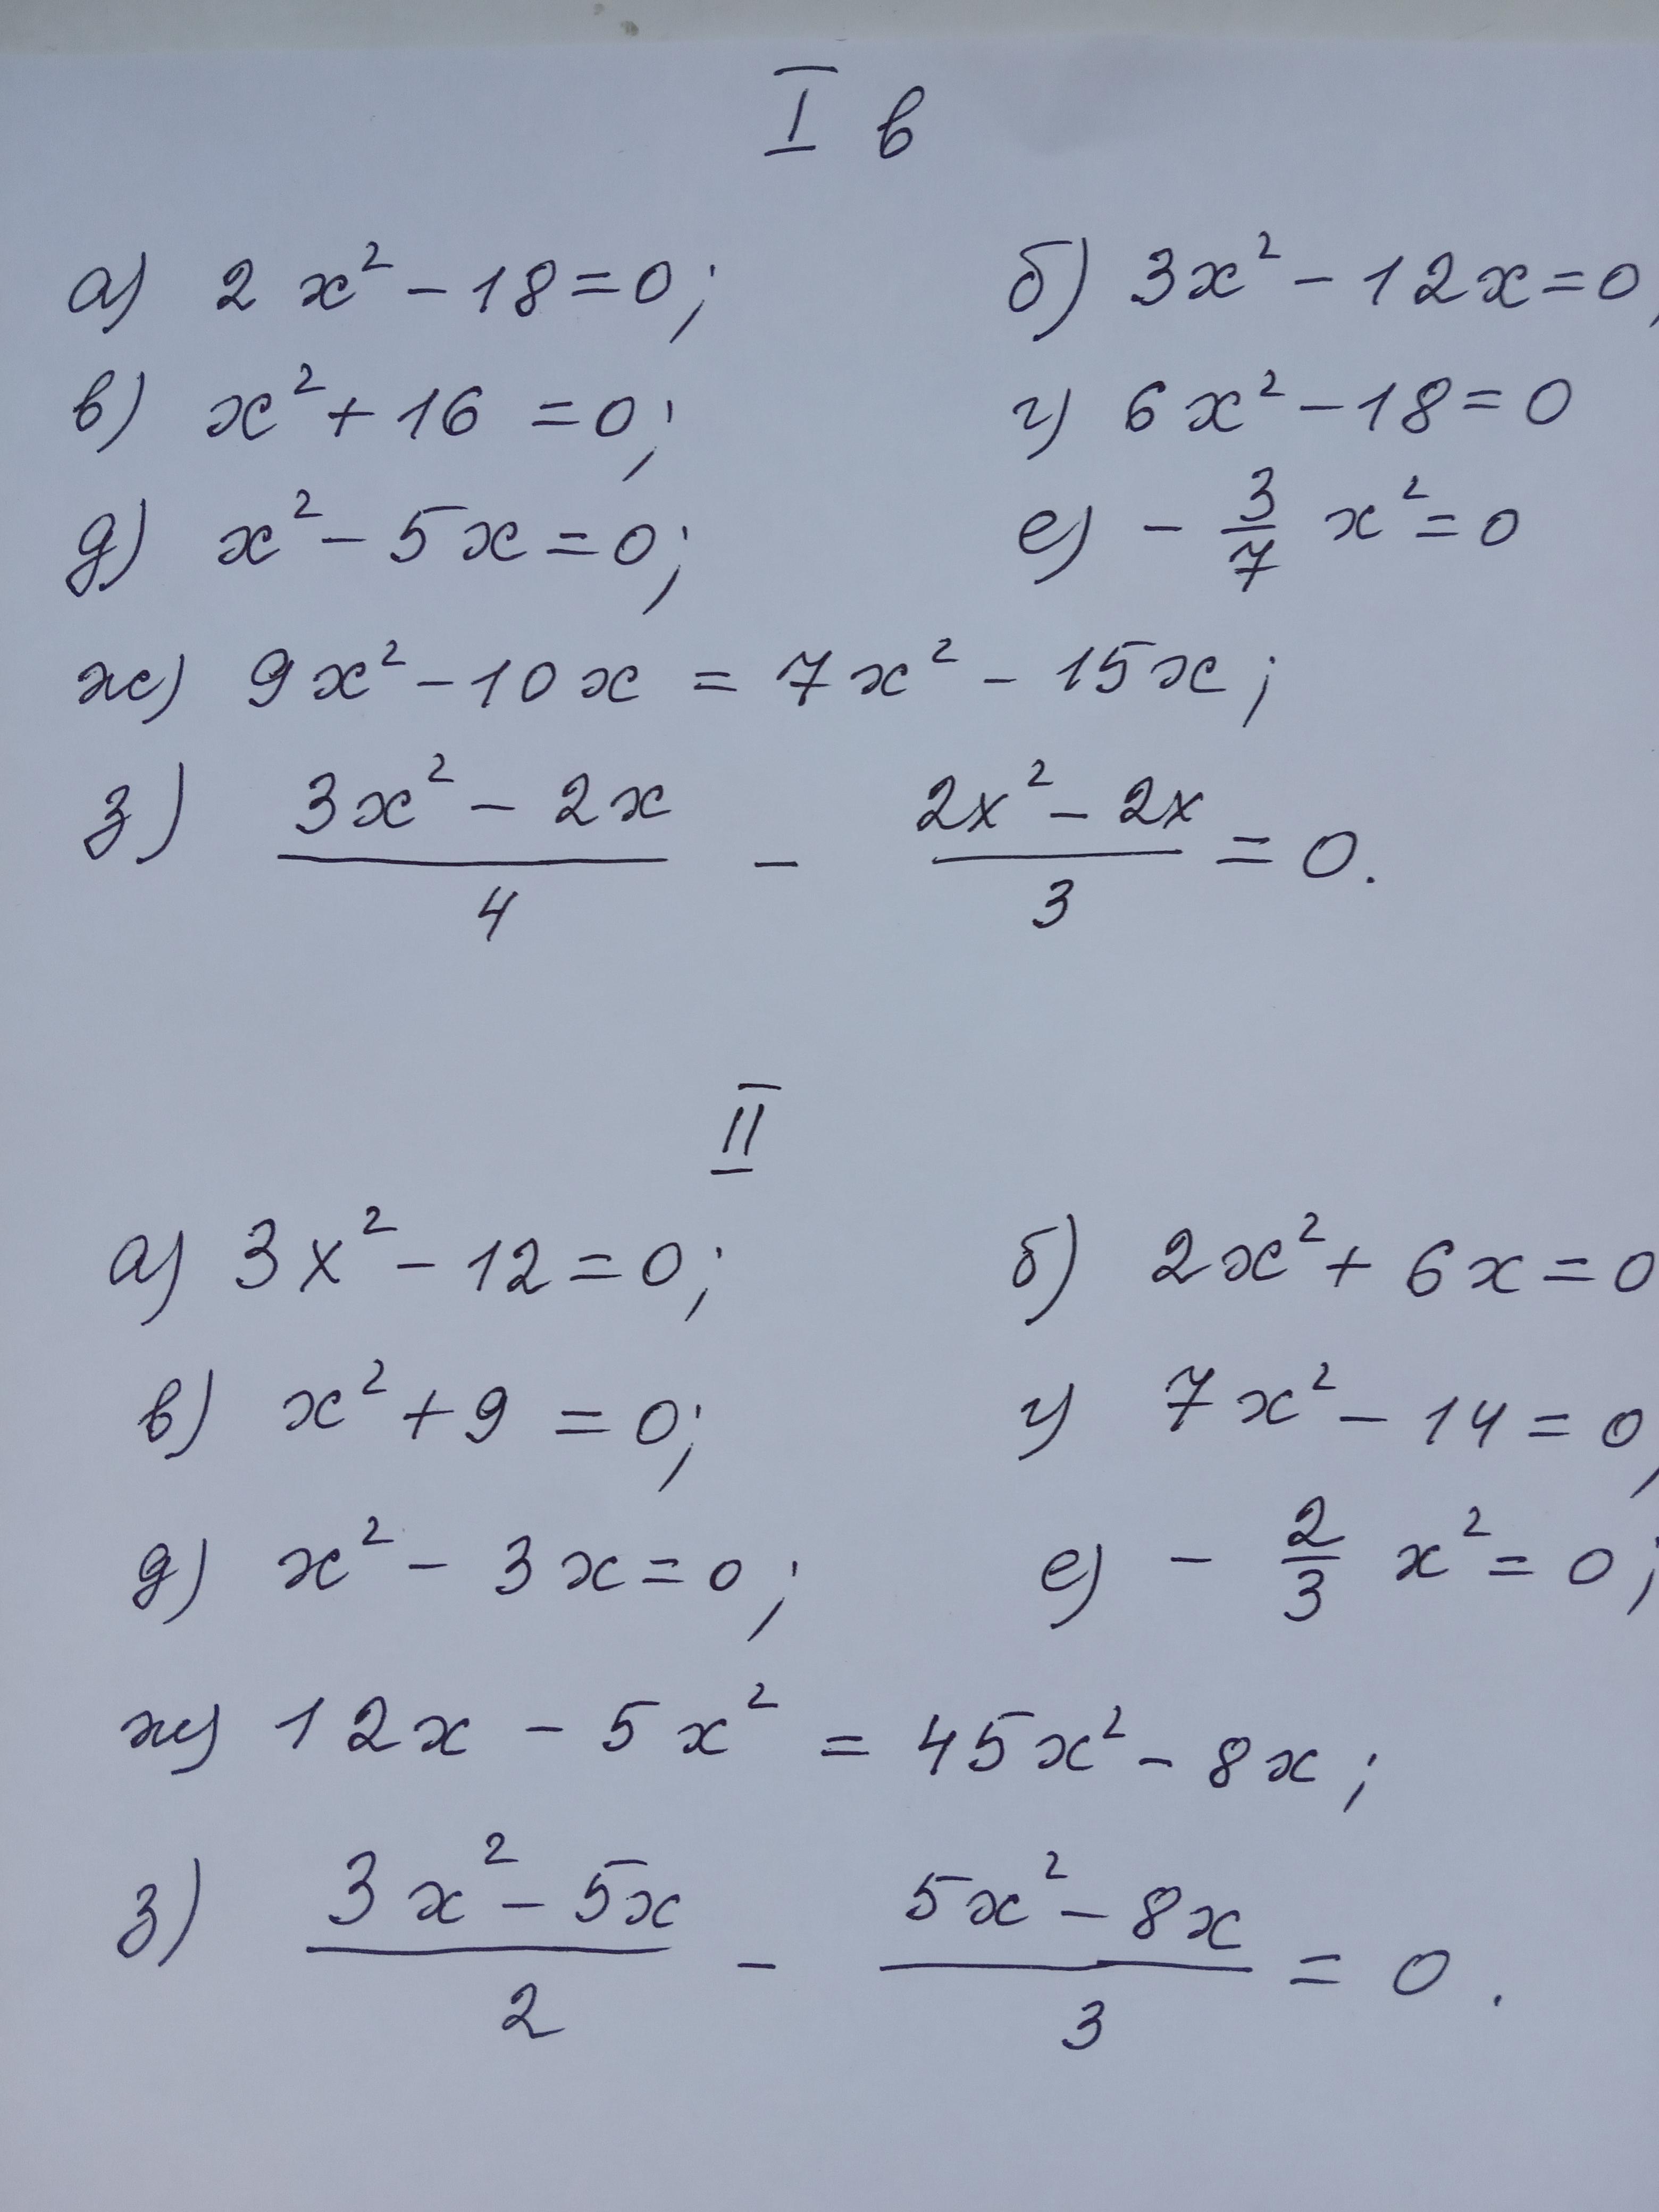 I в
а) 2x² - 18 = 0; б) 3x² - 12x = 0,
в) x² + 16 = 0; г) 6x² - 18 = 0
д) x² - 5x = 0; е) - 3/7 x² = 0
ж) 9x² - 10x = 7x² - 15x;
з) (3x² - 2x)/4 - (2x² - 2x)/3 = 0.
II
а) 3x² - 12 = 0; б) 2x² + 6x = 0
в) x² + 9 = 0; г) 7x² - 14 = 0,
д) x² - 3x = 0; е) - 2/3 x² = 0;
ж) 12x - 5x² = 45x² - 8x;
з) (3x² - 5x)/2 - (5x² - 8x)/3 = 0.